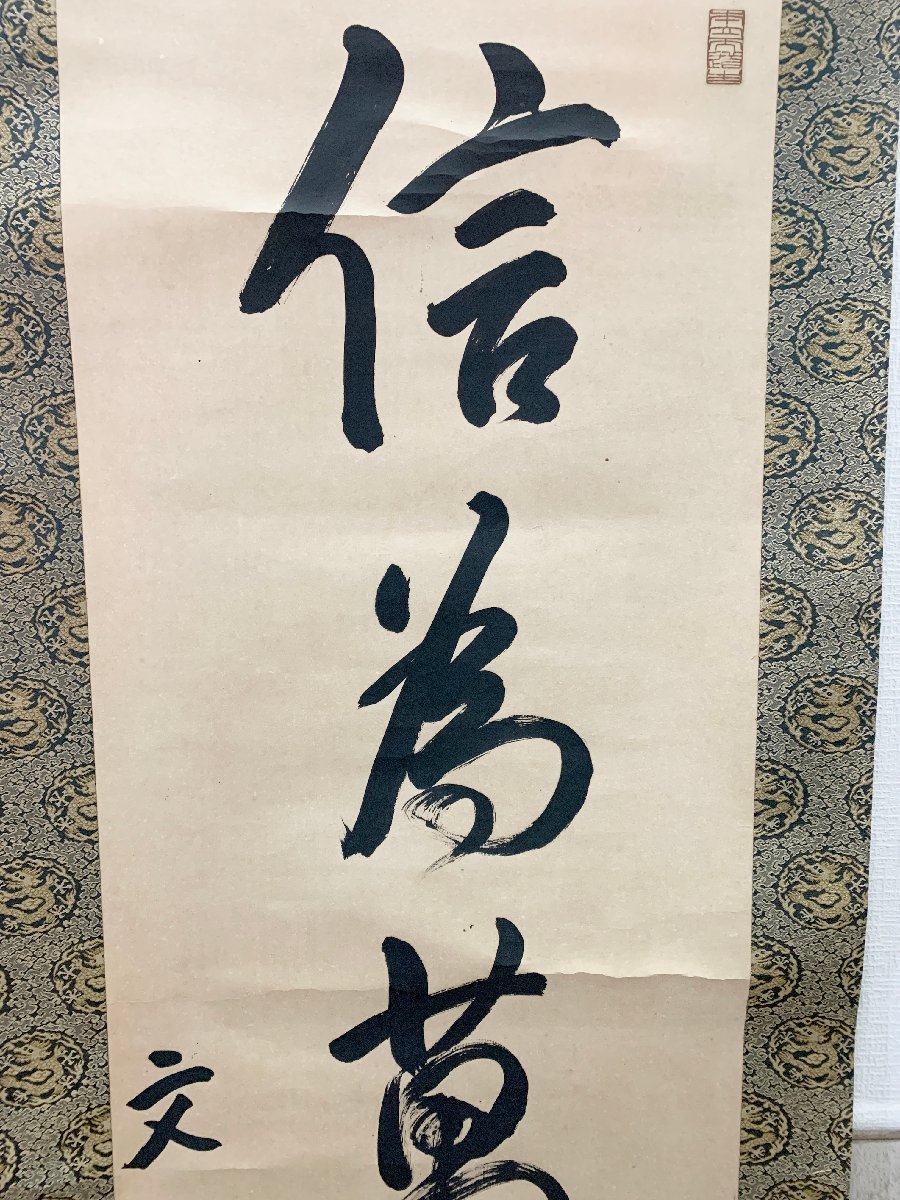 信為萬
文